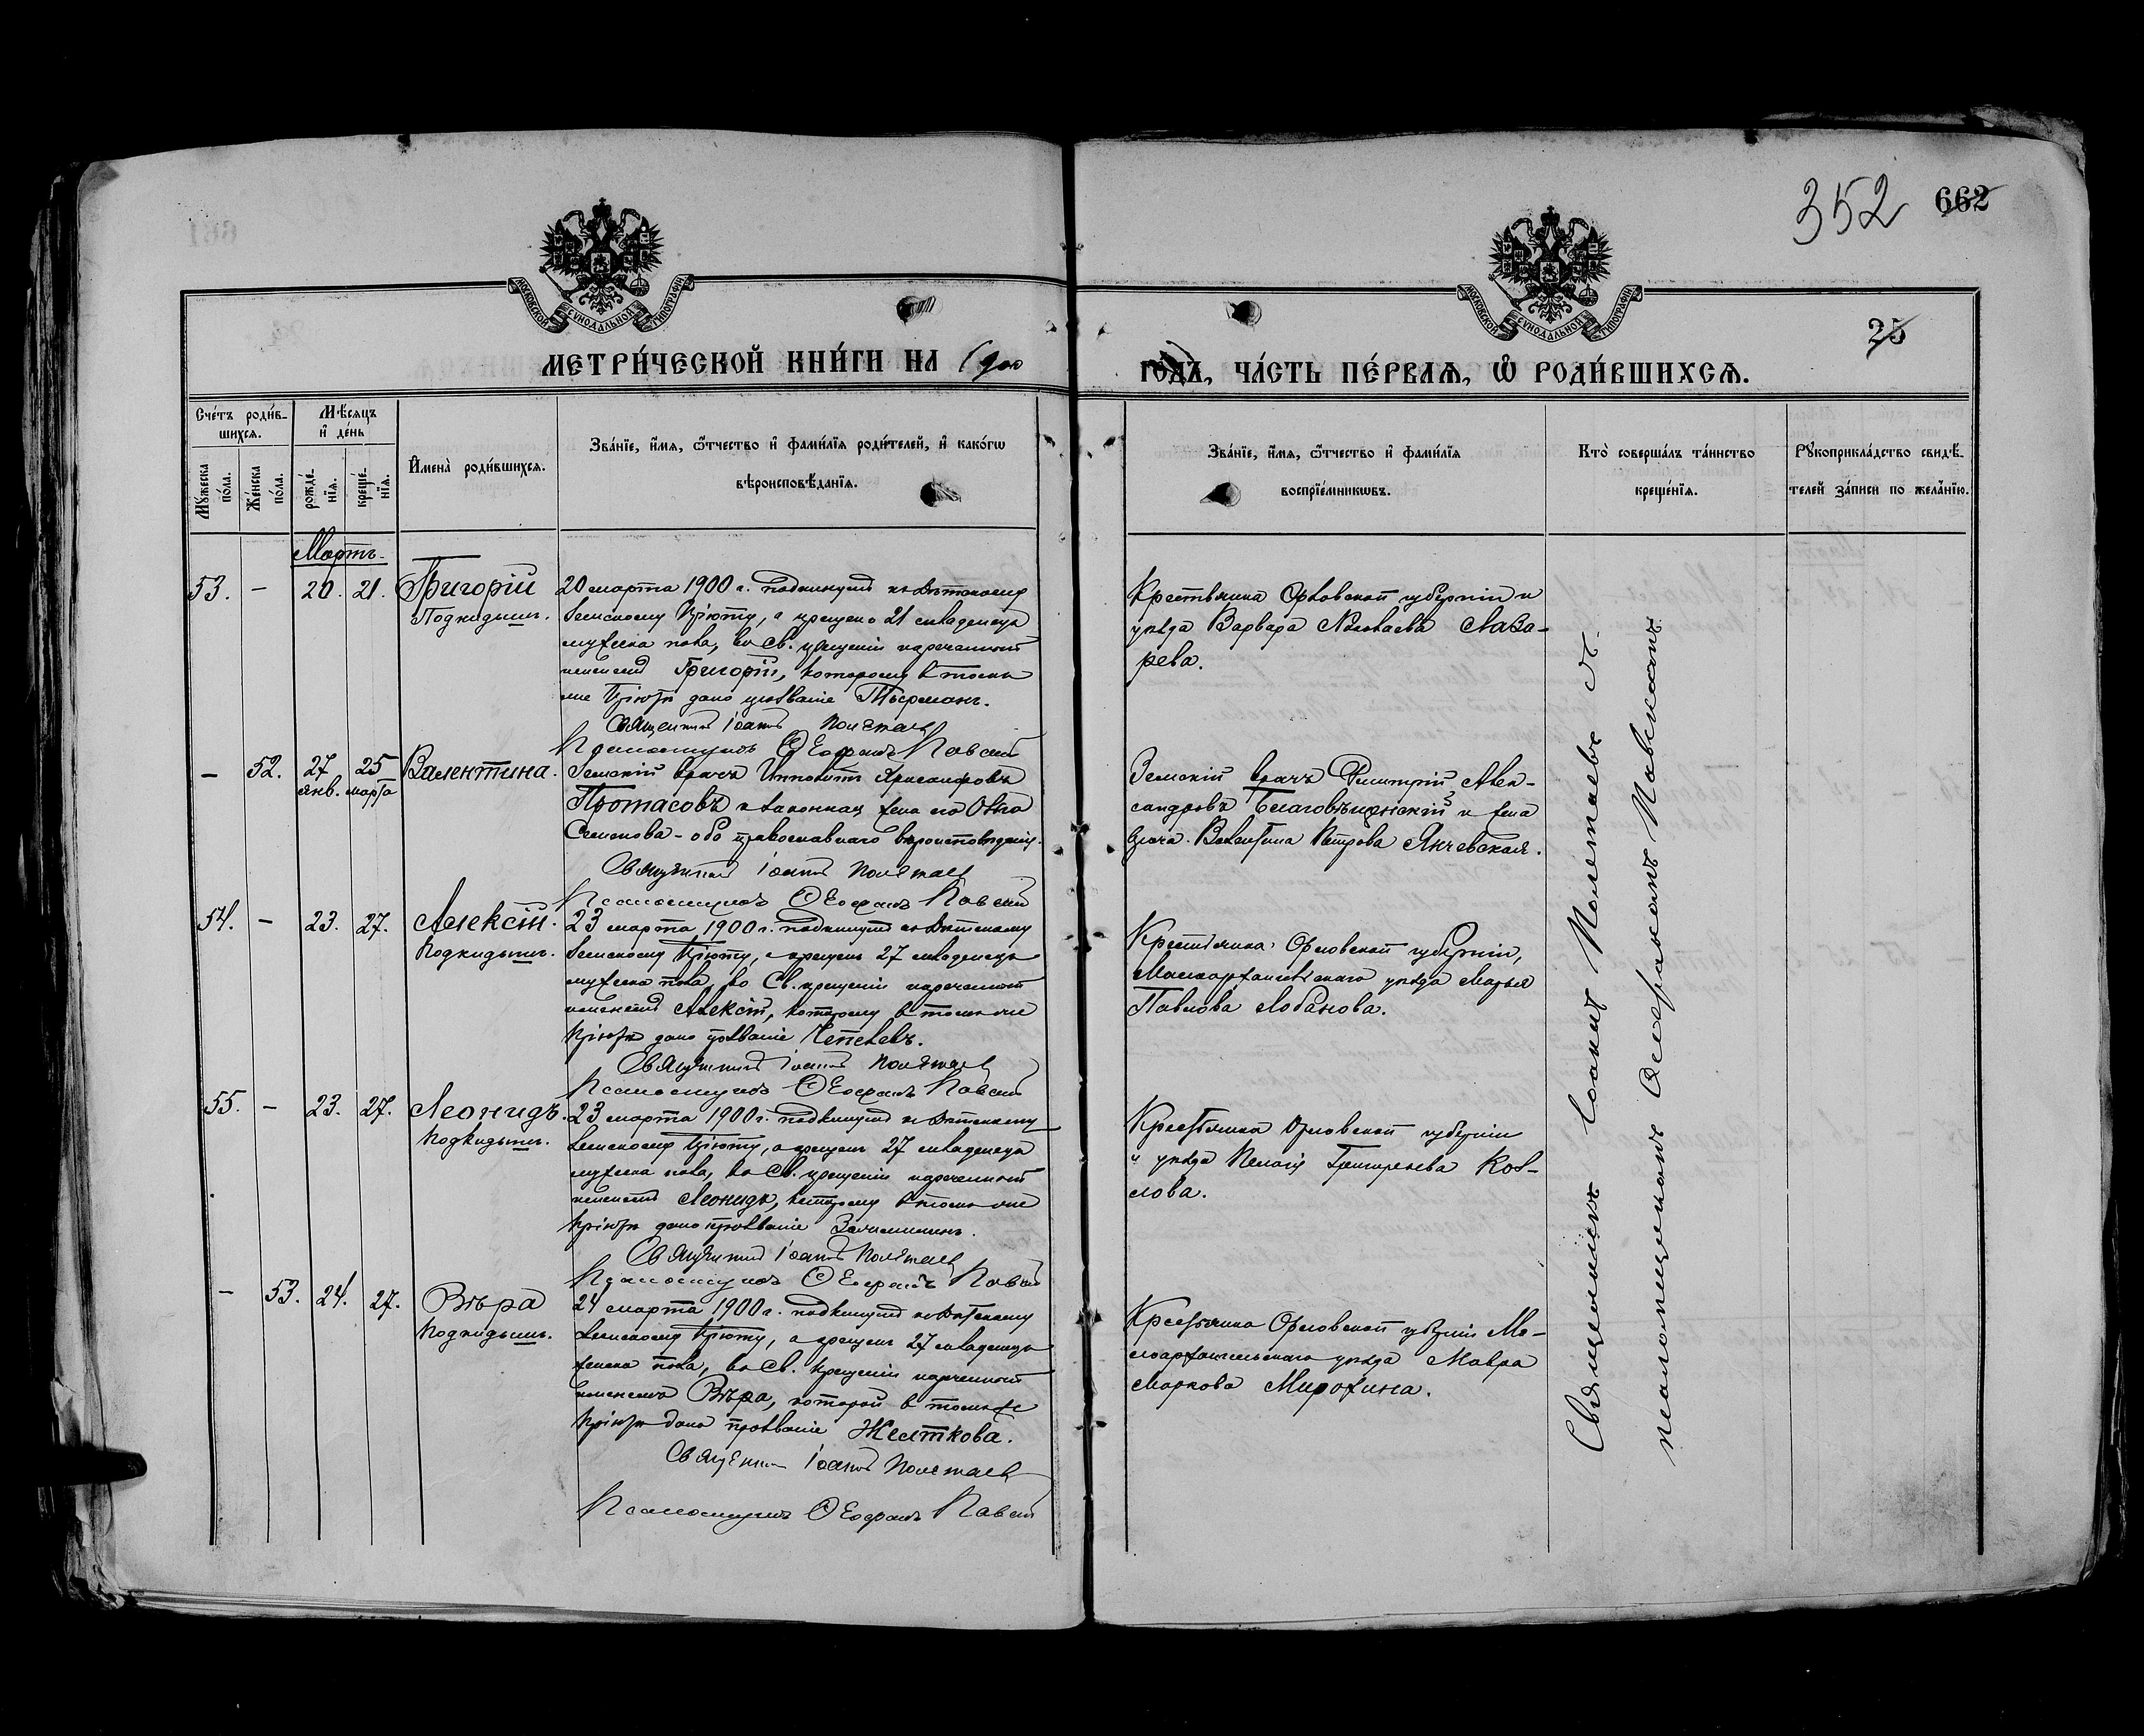 352 662
МОСКОВСКОЙ СѴНОДАЛЬНОЙ ТИПОГРАФІИ
МОСКОВСКОЙ СѴНОДАЛЬНОЙ ТИПОГРАФІИ
25
МЕТРИ́ЧЕСКОЙ КНИ́ГИ НА 1900
ГО́ДЪ, ЧА́СТЬ ПЕ́РВАѦ, Ѽ РОДИ́ВШИХСѦ.
Сче́тъ роди́в-
шихсѧ.
Мѣ́сѧцъ
и҆ де́нь
Мꙋ́жеска по́ла.
Же́нска по́ла.
рожде́-
нїѧ.
креще́-
нїѧ.
И҆мена̀ роди́вшихсѧ.
Зва́нїе, и҆́мѧ, ѻ҆́тчество и҆ фами́лїѧ роди́телей, и҆ како́гѡ
вѣроисповѣ́данїѧ.
Зва́нїе, и҆́мѧ, ѻ҆́тчество и҆ фами́лїѧ
воспрїе́мникѡвъ.
Кто̀ соверша́лъ та́инство
креще́нїѧ.
Рꙋкоприкла́дство свидѣ́-
телей за́писи по жела́нїю.
Мартъ
53. – 20. 21. Григорій
Подкидышъ.
20 марта 1900 г. подкинутъ къ Дѣтскому
Земскому Пріюту, а крещенъ 21 младенецъ
мужеска пола, во Св. крещеніи нареченный
именемъ Григорій, которому в томъ
же Пріютѣ дано прозваніе
Священникъ Іоаннъ Полетаевъ
Псаломщикъ Ѳеофанъ Павскій
Крестьянка Орловской губерніи и
уѣзда Варвара Николаева Лаза-
рева.
– 52. 27 янв. 25 марта Валентина.
Земскій врачъ Ипполитъ Хрисанфовъ
Протасовъ и законная жена его Ольга
Семенова – оба православнаго вѣроисповѣданія.
Священникъ Іоаннъ Полетаевъ
Псаломщикъ Ѳеофанъ Павскій
Земскій врачъ Димитрій Алек-
сандровъ Благовѣщенскій и жена
врача Валентина Петрова Янчевская.
54. – 23. 27. Алексій.
Подкидышъ.
23 марта 1900 г. подкинутъ къ Дѣтскому
Земскому Пріюту, а крещенъ 27 младенецъ
мужеска пола, во Св. крещеніи нареченный
именемъ Алексій, которому в томъ же
Пріютѣ дано прозваніе
Священникъ Іоаннъ Полетаевъ
Псаломщикъ Ѳеофанъ Павскій
Крестьянка Орловской губерніи,
Малоархангельскаго уѣзда Марья
Павлова Лобанова.
55. – 23. 27. Леонидъ.
Подкидышъ.
23 марта 1900 г. подкинутъ къ Дѣтскому
Земскому Пріюту, а крещенъ 27 младенецъ
мужеска пола, во Св. крещеніи нареченный
именемъ Леонидъ, которому в томъ же
Пріютѣ дано прозваніе
Священникъ Іоаннъ Полетаевъ
Псаломщикъ Ѳеофанъ Павскій
Крестьянка Орловской губерніи
и уѣзда Пелагія Григорьева Коз-
лова.
– 53. 24. 27. Вѣра
Подкидышъ.
24 марта 1900 г. подкинутъ къ Дѣтскому
Земскому Пріюту, а крещенъ 27 младенецъ
женска пола, во Св. крещеніи нареченный
именемъ Вѣра, которой в томъ же
Пріютѣ дано прозваніе Желткова.
Священникъ Іоаннъ Полетаевъ
Псаломщикъ Ѳеофанъ Павскій
Крестьянка Орловской губерніи Ма-
лоархангельскаго уѣзда Мавра
Маркова Мирохина.
Священникъ Іоаннъ Полетаевъ съ
псаломщикомъ Ѳеофаномъ Павскимъ